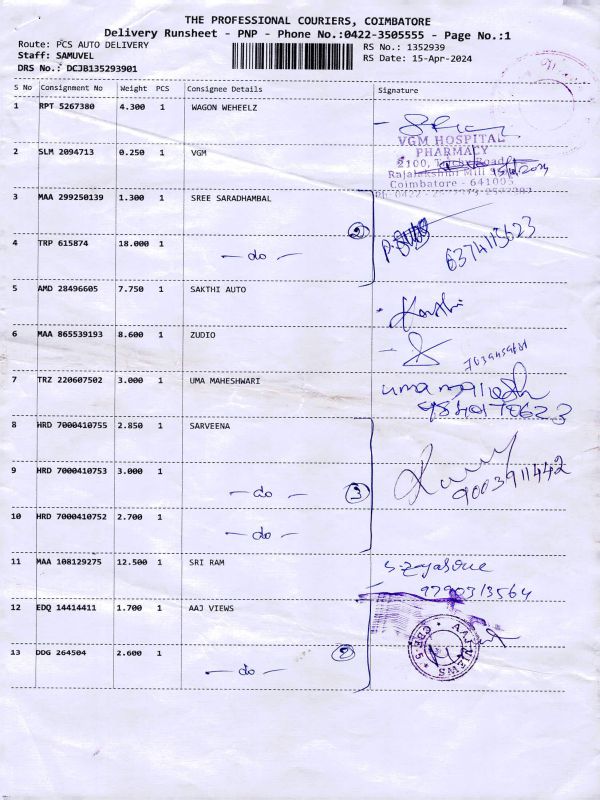 THE PROFESSIONAL COURIERS, COIMBATORE
Delivery Runsheet - PNP - Phone No.:0422-3505555 - Page No.:1
Route: PCS AUTO DELIVERY
RS No.: 1352939
Staff: SAMUVEL
RS Date: 15-Apr-2024
DRS No.: DCJB135293901
S No Consignment No Weight PCS Consignee Details Signature
1 RPT 5267380 4.300 1 WAGON WEHEELZ
VGM HOSPITAL
PHARMACY
2 SLM 2094713 0.250 1 VGM
2100, Trichy Road
Rajalakshmi Mill
Coimbatore - 641005
3 MAA 299250139 1.300 1 SREE SARADHAMBAL
2
4 TRP 615874 18.000 1 - do -
6374115623
5 AMD 28496605 7.750 1 SAKTHI AUTO
6 MAA 865539193 8.600 1 ZUDIO
7 TRZ 220607502 3.000 1 UMA MAHESHWARI
8 HRD 7000410755 2.850 1 SARVEENA
9 HRD 7000410753 3.000 1 - do - 3
9003911442
10 HRD 7000410752 2.700 1 - do -
11 MAA 108129275 12.500 1 SRI RAM
9790313564
12 EDQ 14414411 1.700 1 AAJ VIEWS
13 DDG 264504 2.600 1 - do - 2